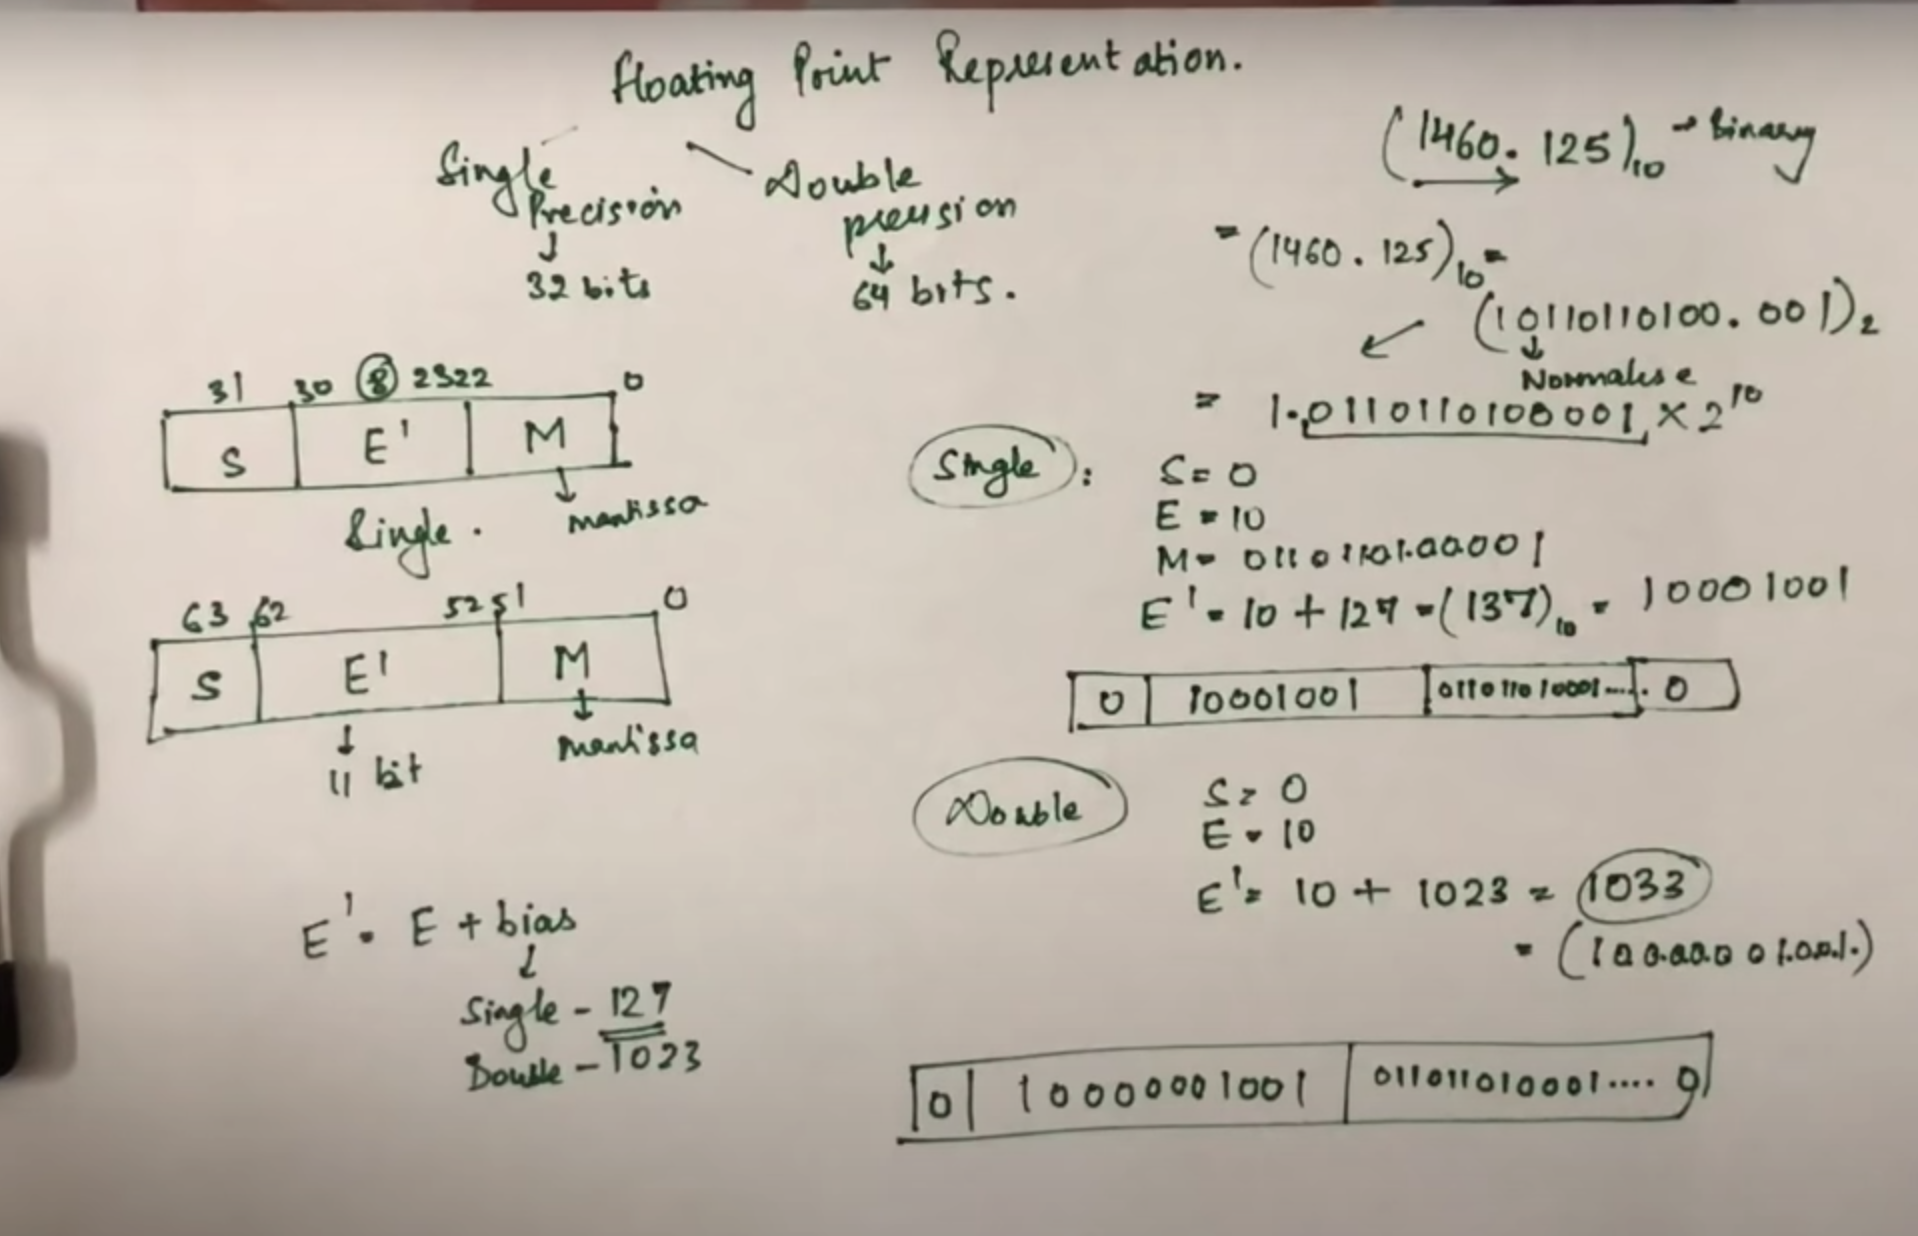 Floating Point Representation.
Single Precision
↓
32 bits
Double
↓
64 bits.
31 30 8 23 22 0
S E' M
↓
mantissa
Single.
63 62 52 51 0
S E' M
↓
11 bit
↓
mantissa
E' = E + bias
↓
Single - 127
Double - 1023
(1460.125)10 → Binary
= (1460.125)10 =
(10110110100.001)2
↓
Normalise
= 1.0110110100001 × 2^10
Single :
S = 0
E = 10
M = 0110110100001
E' = 10 + 127 = (137)10 = 10001001
0 10001001 011011010001.... 0
Double
S = 0
E = 10
E' = 10 + 1023 = 1033
= (10000001001)
0 10000001001 011011010001.... 0